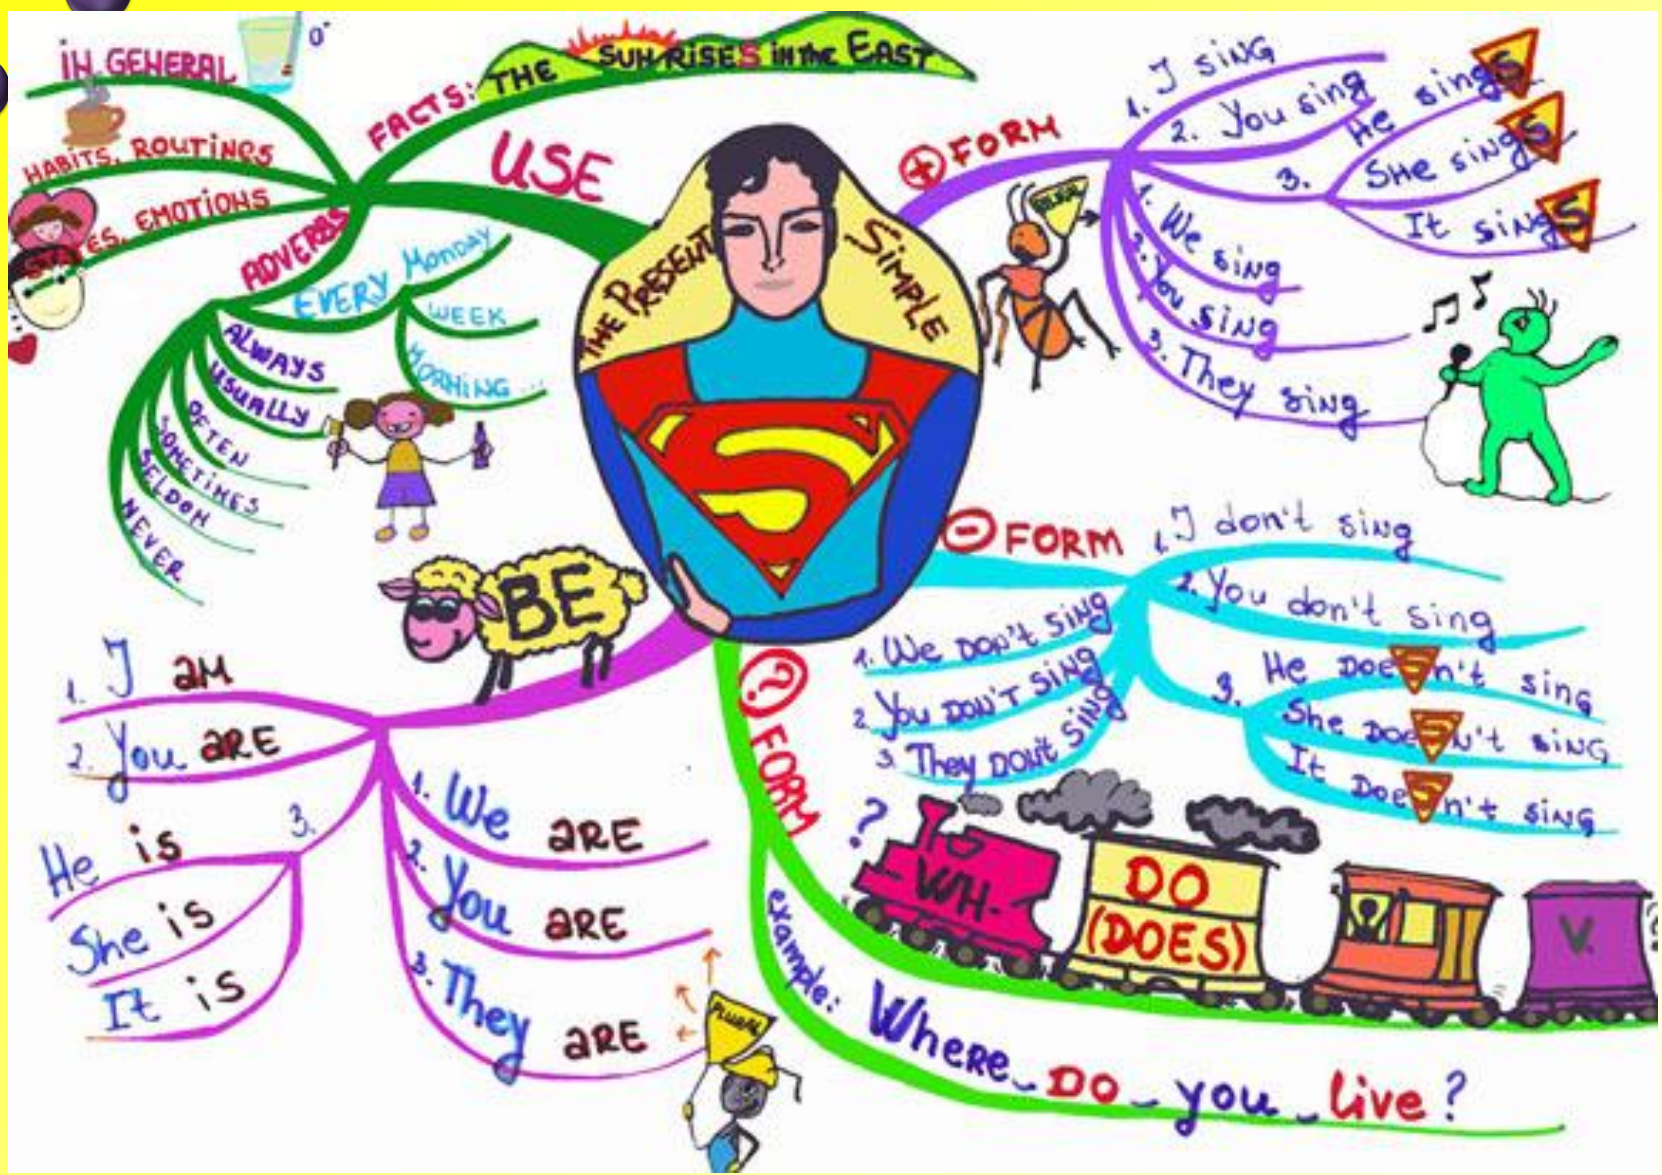 THE PRESENT SIMPLE
USE
FACTS: THE SUN RISES in the EAST
IN GENERAL
0°
HABITS, ROUTINES
STATES, EMOTIONS
ADVERBS
EVERY Monday
WEEK
MORNING ...
ALWAYS
USUALLY
OFTEN
SOMETIMES
SELDOM
NEVER
+ FORM
1. I sing
2. You sing
3.
He sings
She sings
It sings
1. We sing
2. You sing
3. They sing
- FORM
1. I don't sing
2. You don't sing
3.
He Doesn't sing
She Doesn't sing
It Doesn't sing
1. We DON'T sing
2. You DON'T sing
3. They DON't sing
? FORM
?
WH-
DO
(DOES)
V.
example: Where DO you live?
BE
1. I am
2. You are
3.
He is
She is
It is
1. We are
2. You are
3. They are
PLURAL